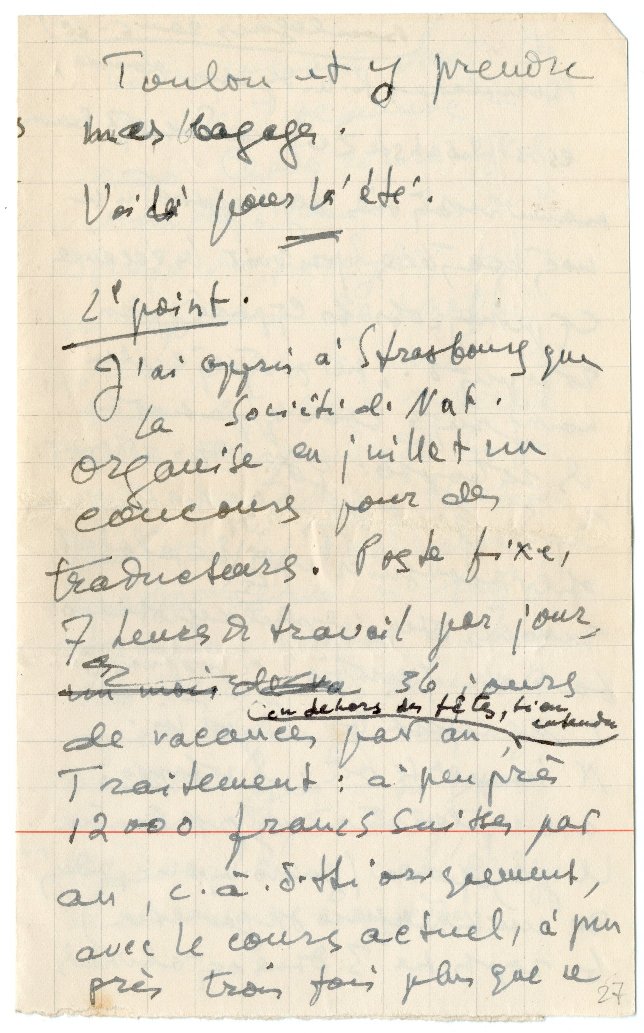 Toulon et y prendre
mes bagages.
Voilà pour l'été.
2e point.
J'ai appris à Strasbourg que
la Société d. Nat.
organise en juillet un
concours pour des
traducteurs. Poste fixe,
7 heures de travail par jour,
un mois de va 36 jours
en dehors des fêtes, bien
entendu
de vacances par an,
Traitement : à peu près
12000 francs suisses par
an, c.à.d. théoriquement,
avec le cours actuel, à peu
près trois fois plus que ce
27